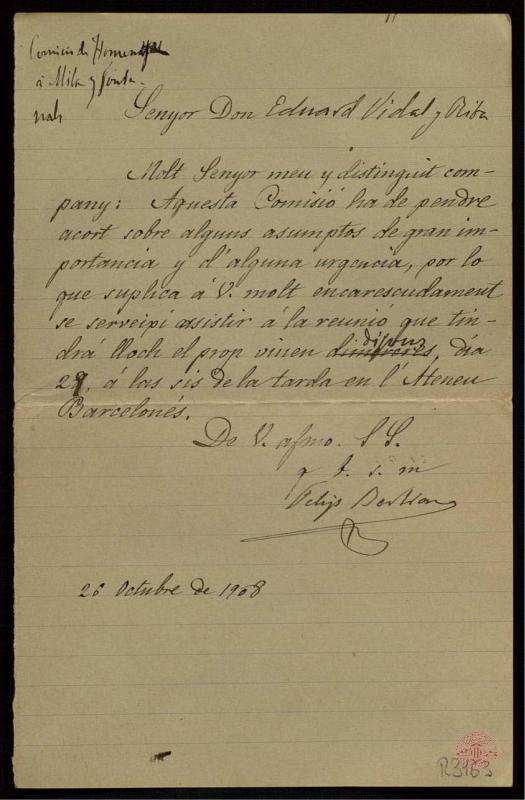 Comissió de Homenatge
á Milá y Fonta-
nals
Senyor Don Eduard Vidal y Riba
Molt Senyor meu y distinguit com-
pany: Aquesta Comisió ha de pendre
acort sobre alguns asumptos de gran im-
portancia y d'alguna urgencia, por lo
que suplica á V. molt encarescudament
se serveipi assistir á la reunió que tin-
drá lloch el prop vinen dimecres, dijous día
29, á las sis de la tarda en l'Ateneu
Barcelonés.
De V. afmo. S S.
q b. s. m
Felip Bertran
26 Octubre de 1908
R3463